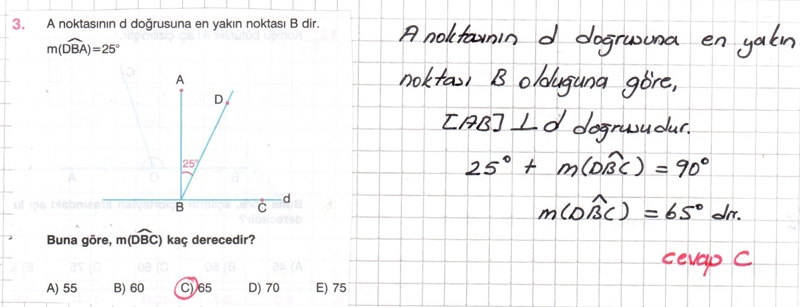 3. A noktasının d doğrusuna en yakın noktası B dir.
m(DBA)=25°
A
D
25°
B
C
d
Buna göre, m(DBC) kaç derecedir?
A) 55 B) 60 C) 65 D) 70 E) 75
A noktasının d doğrusuna en yakın
noktası B olduğuna göre,
[AB] ⊥ d doğrusudur.
25° + m(DBC) = 90°
m(DBC) = 65° dir.
cevap C